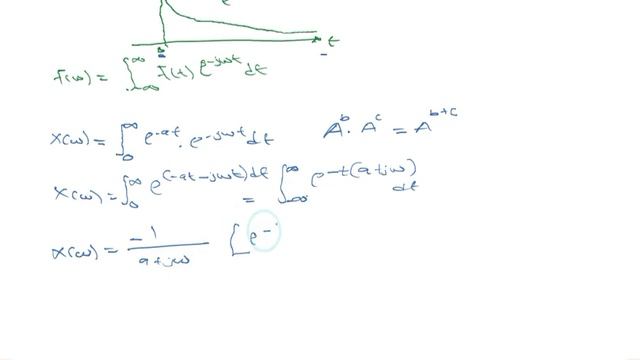 t
F(ω) = ∫_{-∞}^{∞} f(t) e^{-jωt} dt
X(ω) = ∫_{0}^{∞} e^{-at} . e^{-jωt} dt A^{b} . A^{c} = A^{b+c}
X(ω) = ∫_{0}^{∞} e^{(-at-jωt)dt} = ∫_{-∞}^{∞} e^{-t(a+jω)} dt
X(ω) = \frac{-1}{a+jω} [ e^{-